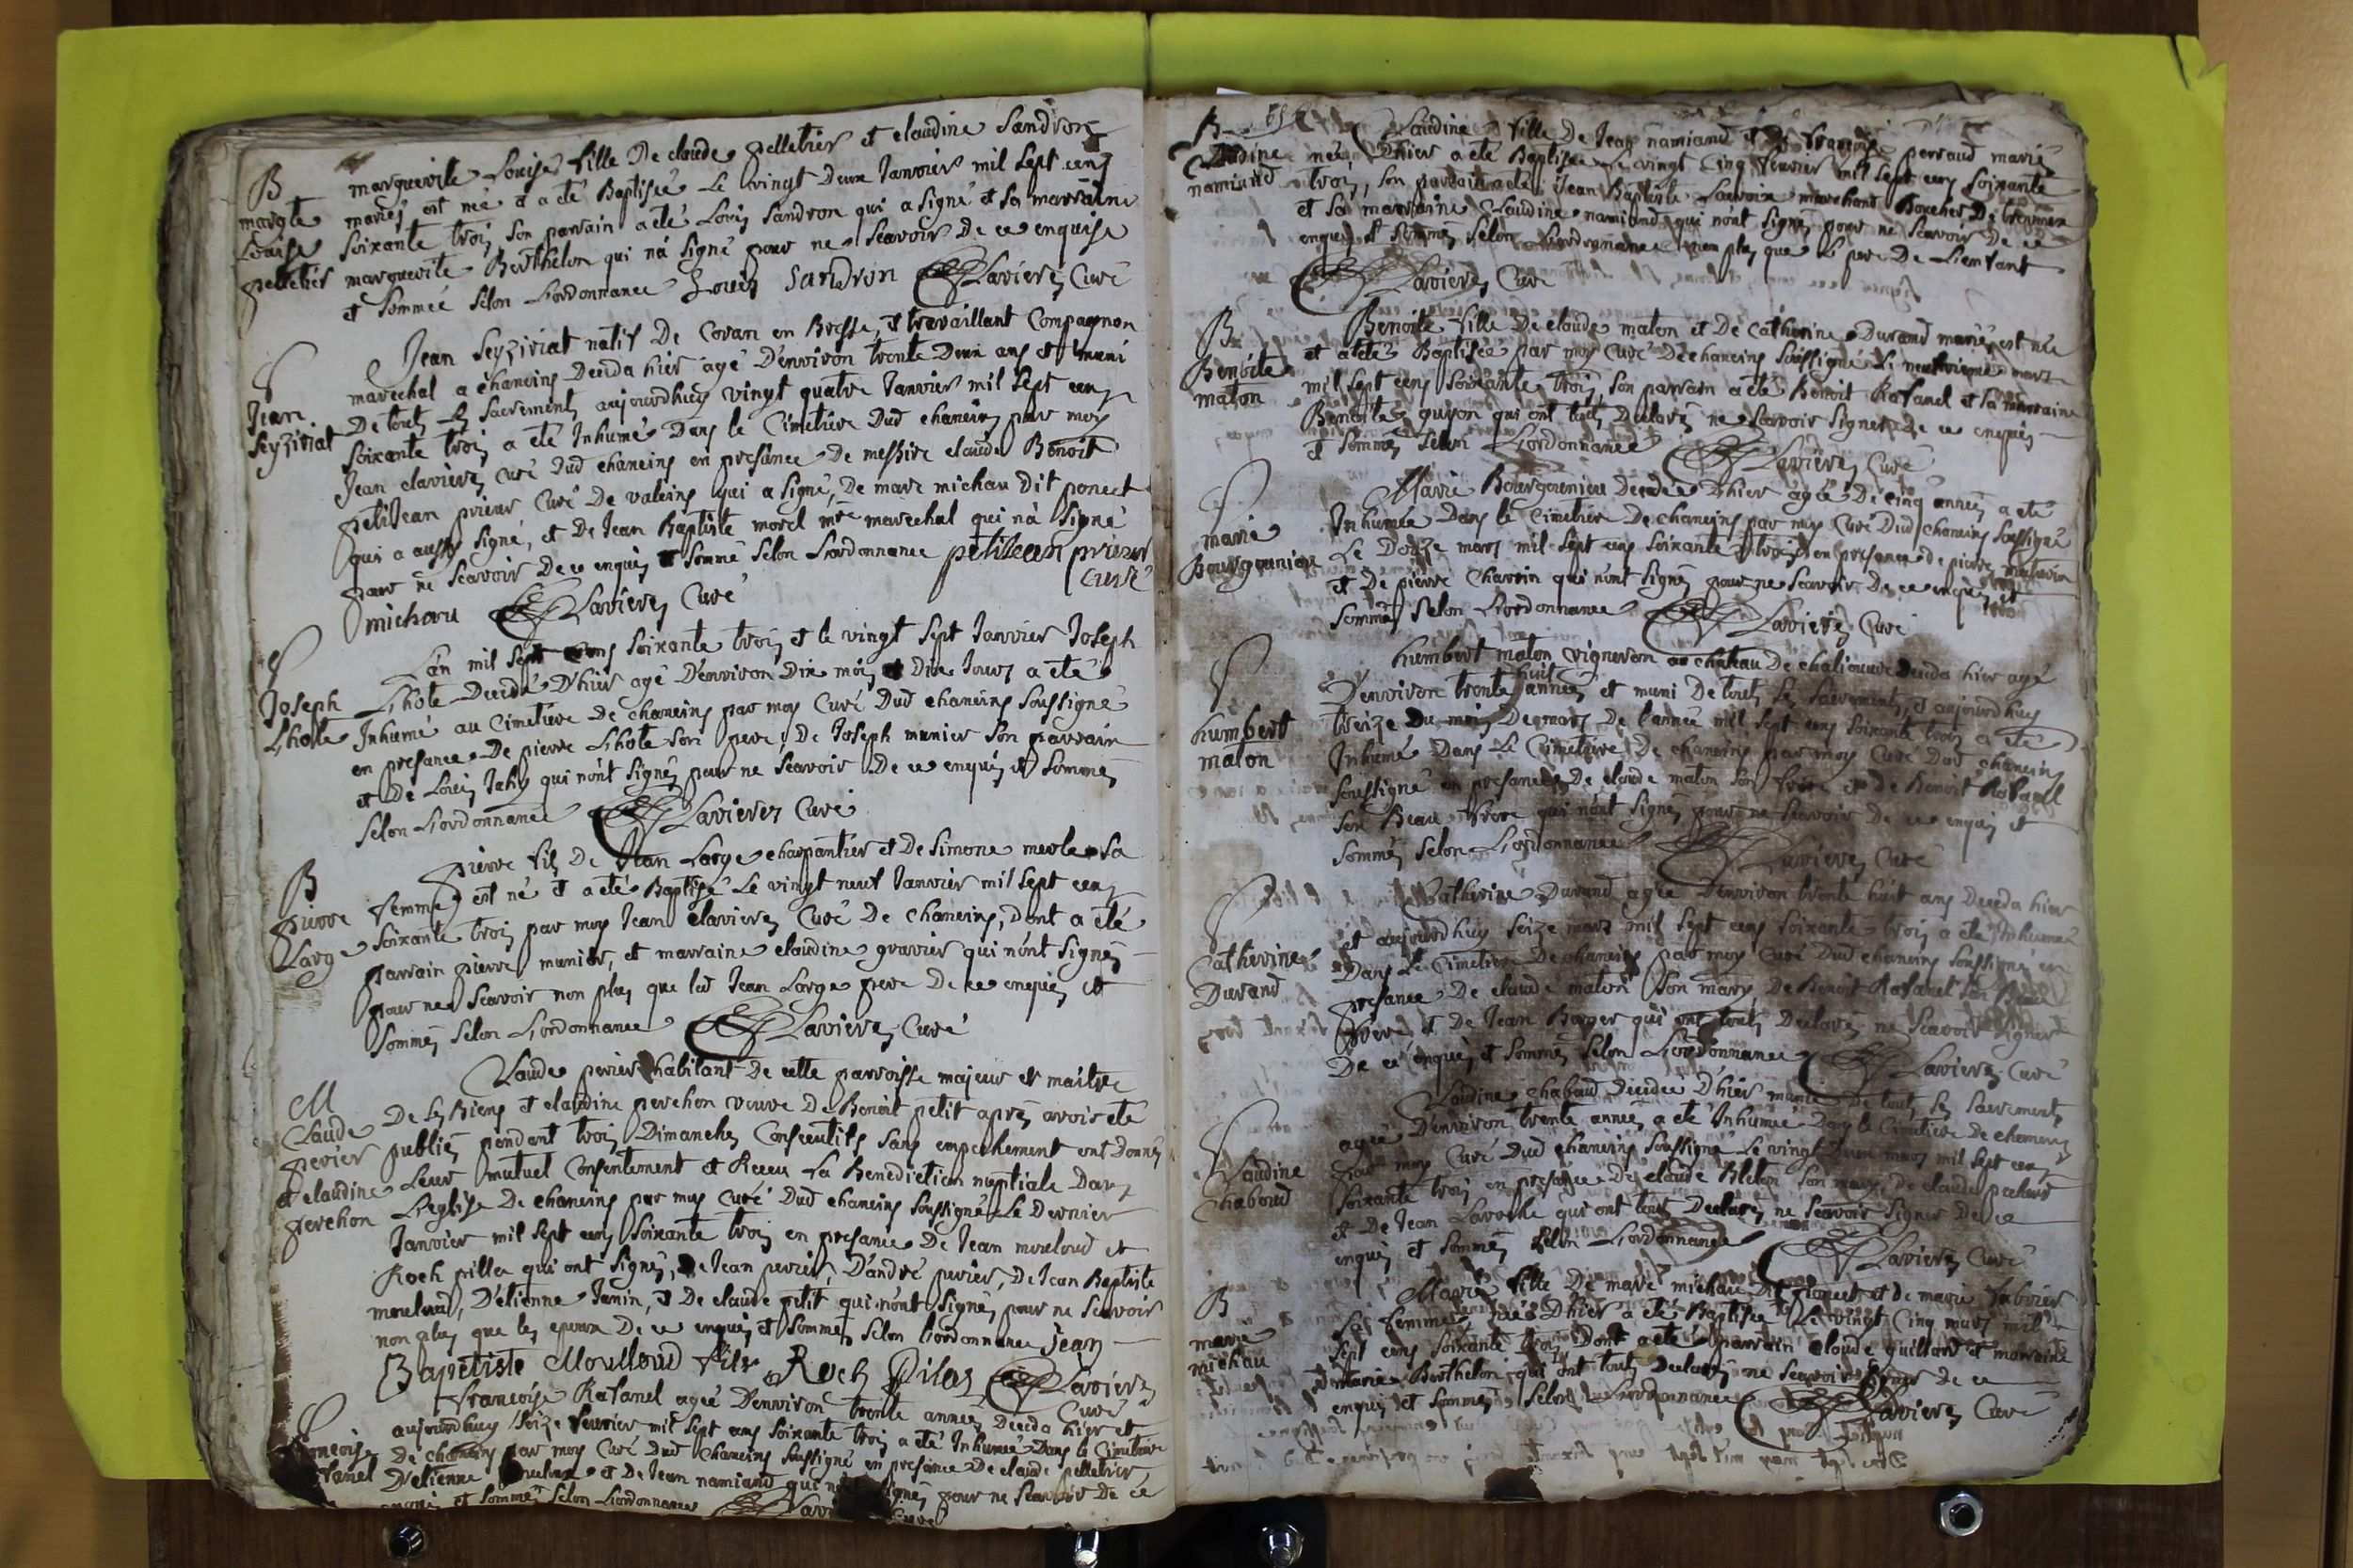 B
margte
Louise
pelletier
marguerite Louise fille De claude pelletier et claudine Sandron
mariés est née et a été Baptisée Le vingt Deux Janvier mil sept cens
soixante trois, son parrain a été Louis Sandron qui a signé et sa marraine
marguerite Berthelon qui n'a signé pour ne scavoir De ce enquise
et sommée selon L'ordonnance Louis Sandron Clavieres Curé
S
Jean
Seyziriat
Jean Seyziriat natif De Coran en Bresse, et travaillant Compagnon
marechal a chaneins Deceda hier agé D'environ trente Deux ans et muni
De touts les sacrements aujourdhuy vingt quatre Janvier mil sept cens
soixante trois a été Inhumé Dans le Cimetiere Dud chaneins par moy
Jean clavieres curé Dud chaneins en presance De messire claude Benoit
petitJean prieur curé De valeins qui a signé, De marc michau dit poncet
qui a aussy signé, et De Jean Baptiste morel mre marechal qui n'a signé
pour ne scavoir De ce enquis et sommé selon L'ordonnance petitJean prieur
curé
michau Clavieres Curé
S
Joseph
Lhote
L'an mil sept cens soixante trois et le vingt sept Janvier Joseph
Lhote Decedé D'hier agé D'environ Dix mois et Dix Jours a été
Inhumé au Cimetiere De chaneins par moy Curé Dud chaneins soussigné
en presance De pierre Lhote son pere, De Joseph munier son parrain
et De Louis Jahy qui n'ont signés pour ne scavoir De ce enquis et sommés
selon L'ordonnance Clavieres Curé
B
pierre
Large
pierre fils De Jean Large charpantier et De Simone merle sa
femme est né et a été Baptisé Le vingt neuf Janvier mil sept cens
soixante trois par moy Jean Clavieres Curé De Chaneins, Dont a été
parrain pierre munier, et marraine claudine gravier qui n'ont signés
pour ne scavoir non plus que led Jean Large pere De ce enquis et
sommés selon L'ordonnance Clavieres Curé
M
Claude
perier
et claudine
perchon
Claude perier habitant De cette parroisse majeur et maitre
De ses Biens et claudine perchon veuve De Benoit petit après avoir été
publiés pendant trois Dimanches Consecutifs sans empechement ont Donnés
Leur mutuel Consentement et Receu La Benediction nuptiale Dans
L'eglise De chaneins par moy curé Dud chaneins soussigné Le Dernier
Janvier mil sept cens soixante trois en presance De Jean moreloud et
Roch pilla qui ont signés, De Jean perier, D'andré perier, De Jean Baptiste
mouloud, D'etienne Janin, et De claude petit qui n'ont signés pour ne scavoir
non plus que les epoux De ce enquis et sommés selon l'ordonnance Jean
Baptetiste Moulloud fils Roch Pilas Clavieres
Curé
françoise
Rafanel
françoise Rafanel agée D'environ trente années Deceda hier et
aujourdhuy seize fevrier mil sept cens soixante trois a été Inhumée Dans le Cimetiere
De chaneins par moy Curé Dud Chaneins soussigné en presance De claude pelletier,
D'etienne et De Jean namiand qui signés pour ne scavoir De ce
enquis et sommés selon L'ordonnance Curé
B
Claudine
namiand
Claudine fille De Jean namiand et De françoise perraud mariés
née D'hier a été Baptisée Le vingt Cinq fevrier mil sept cens soixante
trois, son parrain a été Jean Baptiste Lavoix marchand Boucher De
et sa marraine Claudine namiand qui n'ont signés pour ne scavoir De ce
enquis et sommés selon L'ordonnance non plus que Le pere De L'enfant
Clavieres Curé
B
Benoite
maton
Benoite fille De claude maton et De Catherine Durand mariés est née
et a été Baptisée par moy Curé De chaneins soussigné Le neufvieme mars
mil sept cens soixante trois, son parrain a été Benoit Rafanel et sa marraine
Benoite guyon qui ont touts Declarés ne scavoir signer De ce enquis
et sommés selon L'ordonnance Clavieres Curé
S
marie
Bourgounieu
Marie Bourgounieu Decedée D'hier agée De cinq années a été
Inhumée Dans le Cimetiere De chaneins par moy Curé Dud Chaneins soussigné
Le Douze mars mil sept cens soixante et trois en presance De pierre
et De pierre Charvin qui n'ont signés pour ne scavoir De ce enquis et
sommés selon L'ordonnance Clavieres Curé
S
humbert
maton
humbert maton vigneron au chateau De chaliouvre Deceda hier agé
D'environ trente huit années et muni De touts les sacrements, et aujourdhuy
treize Du mois De mars De l'année mil sept cens soixante trois a été
Inhumé Dans Le Cimetiere De chaneins par moy Curé Dud chaneins
soussigné en presance De claude maton son frere et de Benoit Rafanel
son Beau frere qui n'ont signés pour ne scavoir De ce enquis et
sommés selon L'ordonnance Clavieres Curé
S
Catherine
Durand
Catherine Durand agée D'environ trente huit ans Deceda hier
et aujourdhuy seize mars mil sept cens soixante trois a été Inhumée
Dans Le Cimetiere De chaneins par moy Curé Dud chaneins soussigné en
presance De claude maton son mary, De Benoit Rafanel son Beau
frere, et De Jean Berger qui ont touts Declarés ne scavoir signer
De ce enquis et sommés selon L'ordonnance Clavieres Curé
S
Claudine
Chaboud
Claudine chaboud Decedée D'hier munie De touts les sacrements
agée D'environ trente années a été Inhumée Dans le Cimetiere De chaneins
par moy Curé Dud chaneins soussigné Le vingt Deux mars mil sept cens
soixante trois en presance De claude Bleton son mary, De claude
et De Jean Laroche qui ont touts Declarés ne scavoir signer De ce
enquis et sommés selon L'ordonnance Clavieres Curé
B
marie
michau
Marie fille De marc michau Dit poncet et de marie
sa femme née D'hier a été Baptisée Le vingt Cinq mars mil
sept cens soixante trois Dont a été parrain claude guillard et marraine
marie Berthelon qui ont touts Declarés ne scavoir signer De ce
enquis et sommés selon L'ordonnance Clavieres Curé